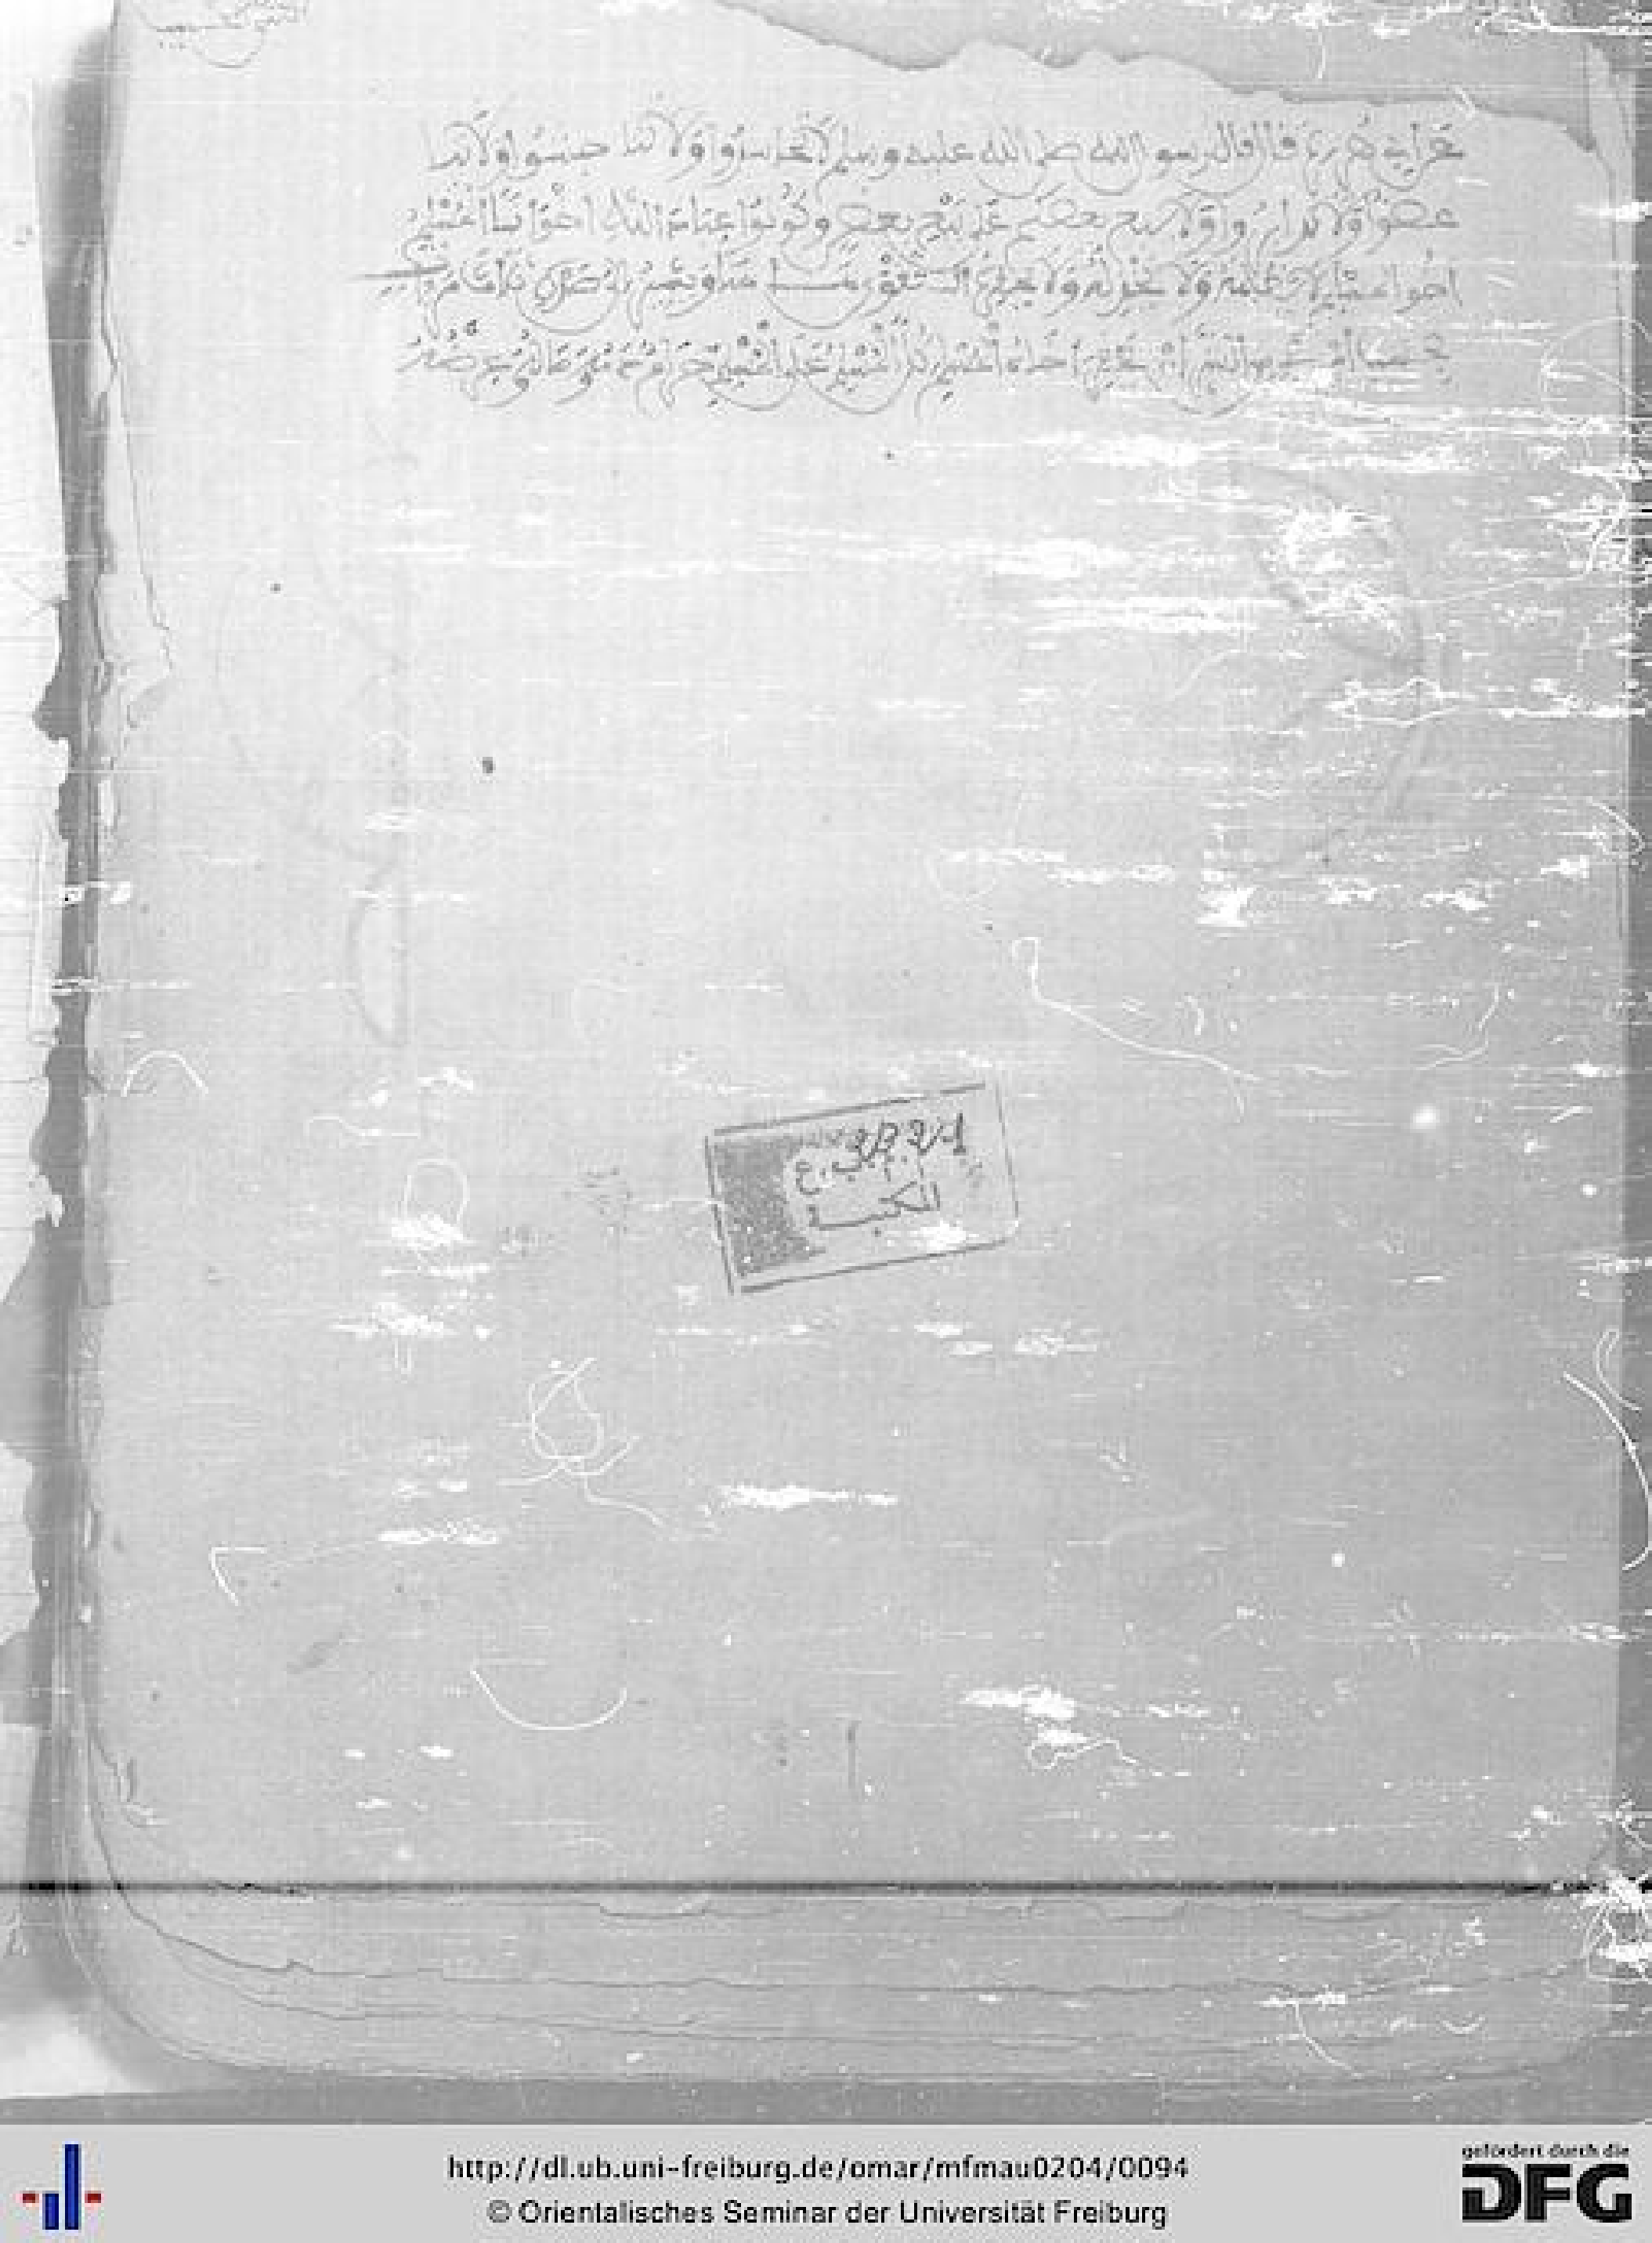 عن أبي هريرة قال قال رسول الله صلى الله عليه وسلم لا تحاسدوا ولا تنا جشوا ولا تبا
غضوا ولا تدابروا ولا يبيع بعضكم على بيع بعض وكونوا عباد الله اخوانا المسلم
اخوا المسلم لا يظلمه ولا يخذله ولا يحقره التقوى هاهنا ويشير إلى صدره ثلاث
بحسب امرئ من الشر ان يحقر أخاه المسلم كل المسلم على المسلم حرام دمه وماله وعرضه
المكتبة
http://dl.ub.uni-freiburg.de/omar/mfmau0204/0094
© Orientalisches Seminar der Universität Freiburg
gefördert durch die
DFG